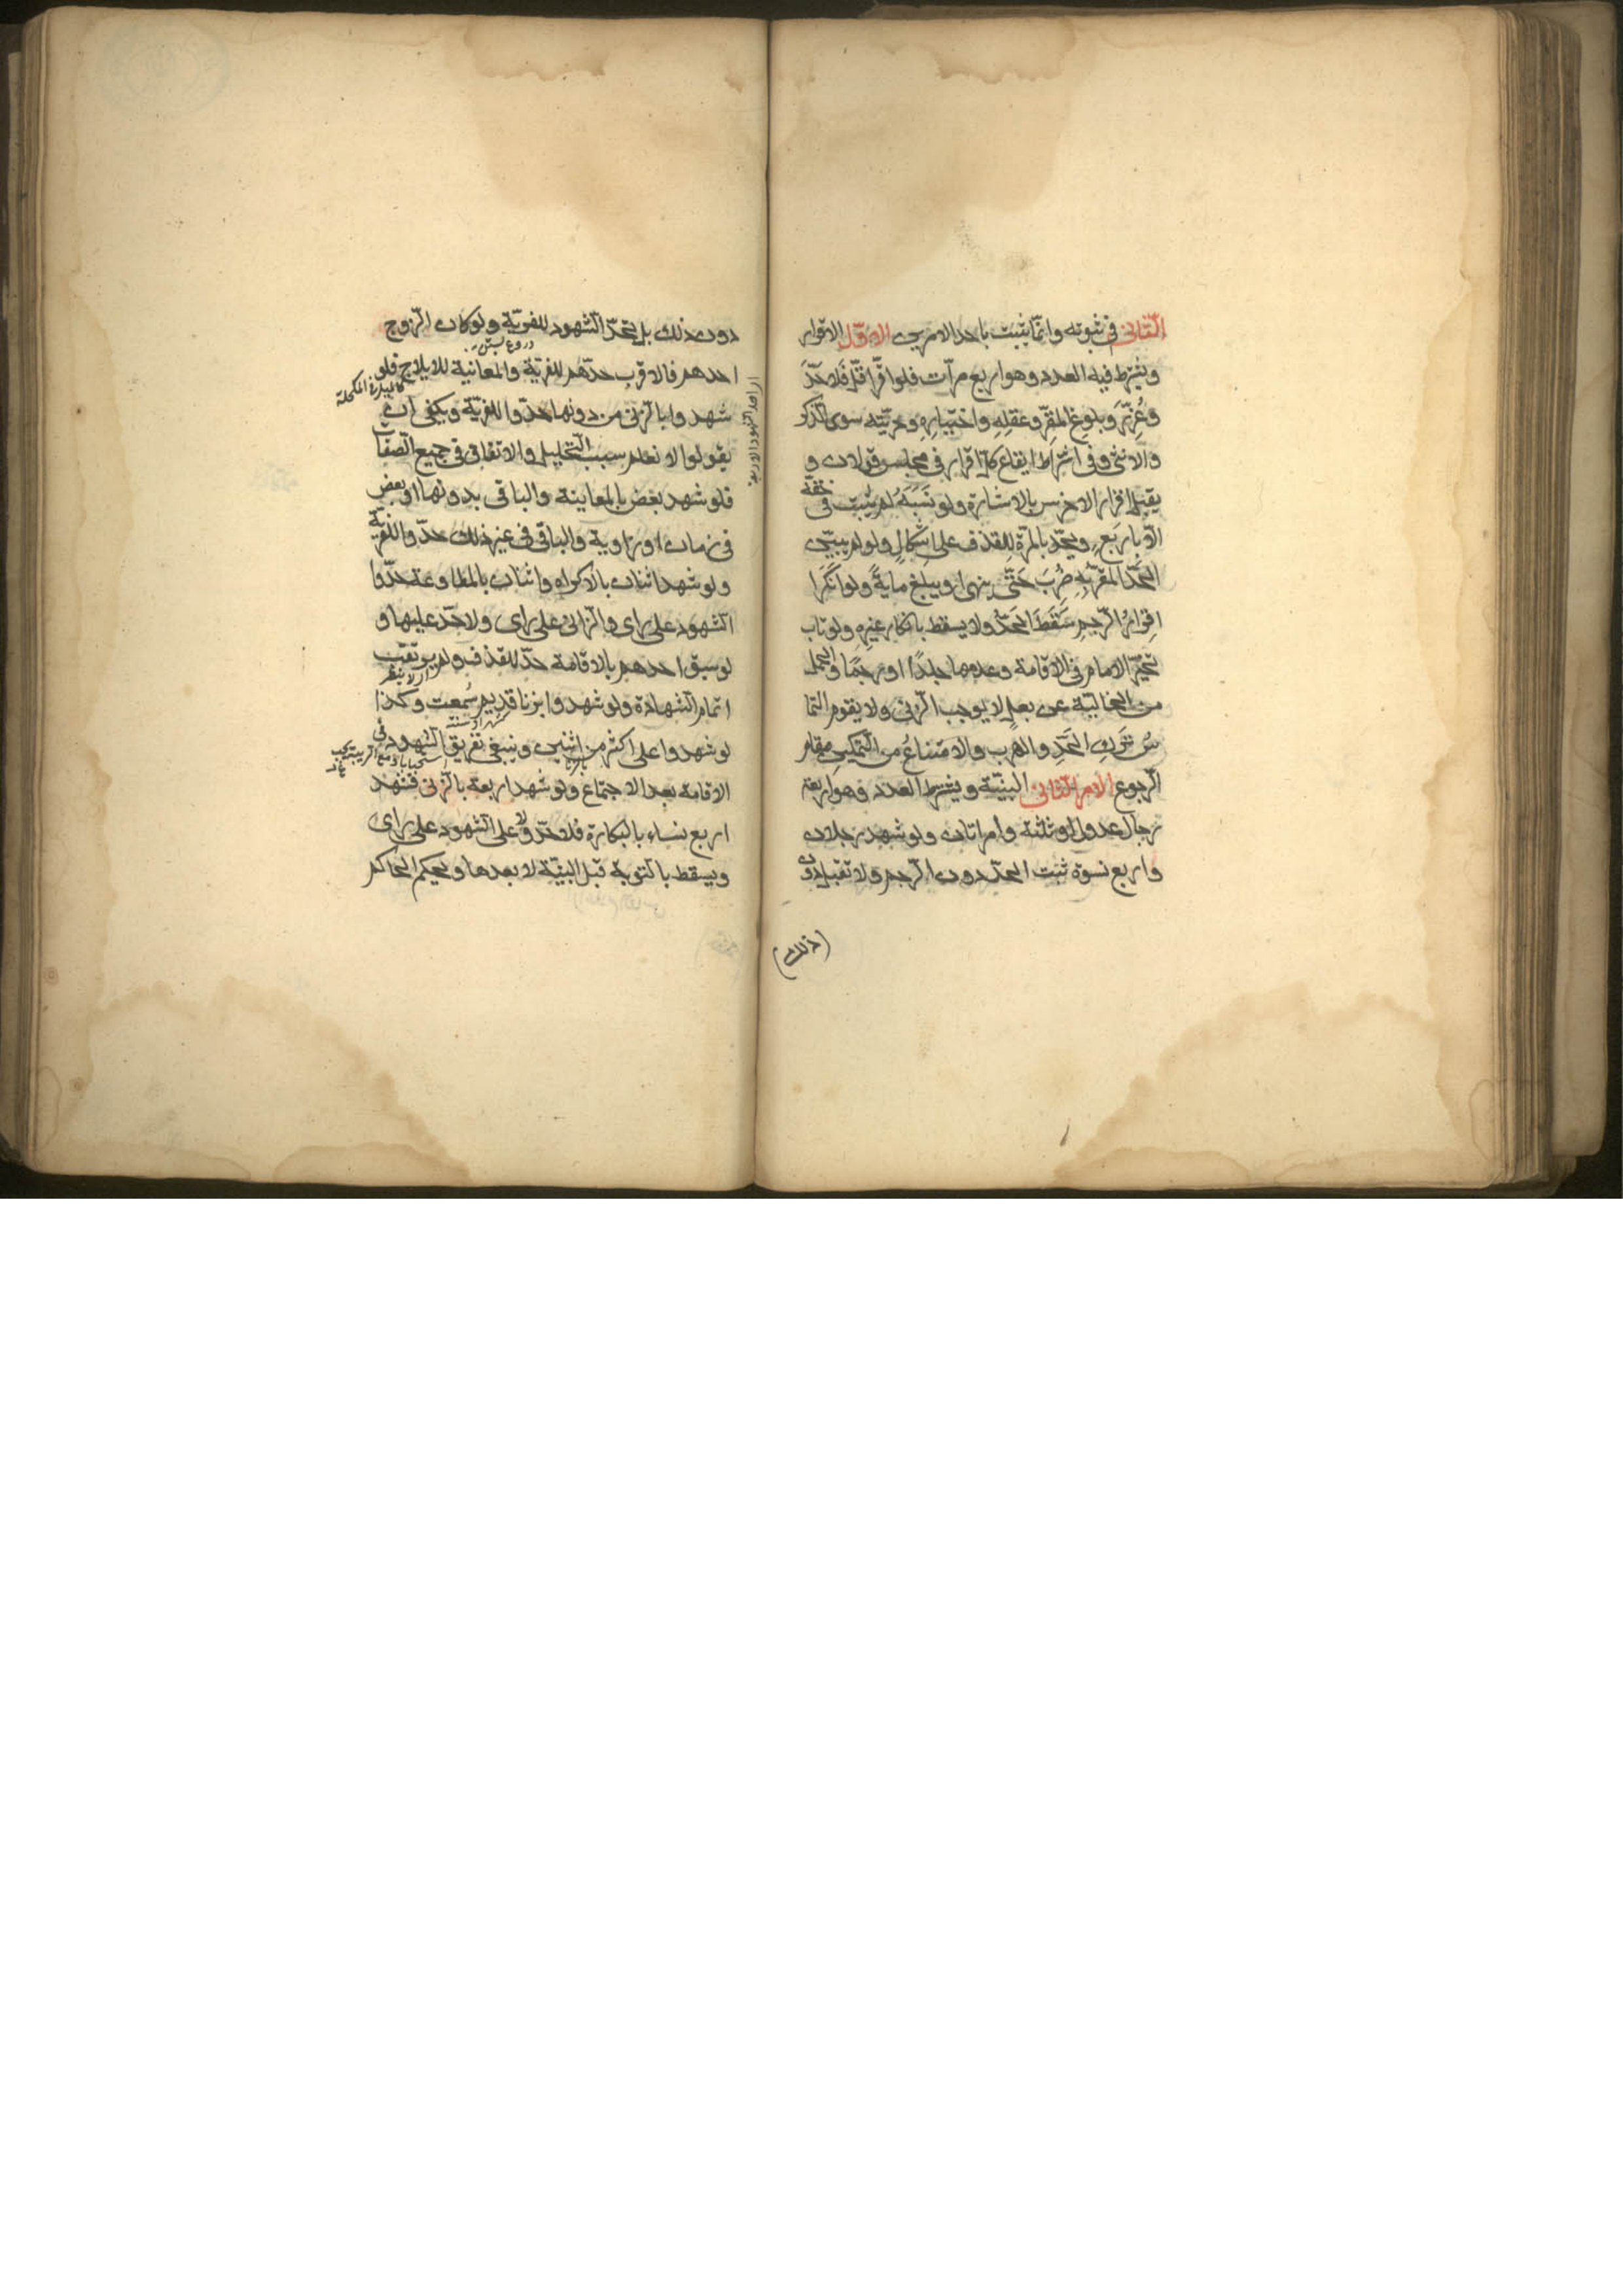 الثانى فى ثبوته وانما يثبت باحد الامرين الاول الاقرار
ويشترط فيه العدد وهو اربع مرات فلو اقر اقل فلا حد
وعزر وبلوغ المقر وعقله واختياره وحريته سوى الذكر
والانثى وفى اشتراط ايقاع كل اقرار فى مجلس قولان و
يقبل اقرار الاخرس بالاشارة ولو نسبه لم يثبت فى حقه
الا باربع ويحد بالمرة للقذف على اشكال ولو لم يبين
الحد المقر به ضرب حتى ينهى او يبلغ ماية ولو انكر ا
اقرار الرجم سقط الحد ولا يسقط بانكار غيره ولو تاب
تخير الامام فى الاقامة وعدمها جلدا او رجما والحمل
من الخالية عن بعل لا يوجب الزنى ولا يقوم التما
س ترك الحد والهرب والامتناع من التمكين مقام
الرجوع الامر الثانى البينة ويشترط العدد وهو اربعة
رجال عدول او ثلثة وامراتان ولو شهد رجلان
واربع نسوة ثبت الحد دون الرجم ولا تقبل دون
(ذلك)
دون ذلك بل تحد الشهود للفرية ولو كان الزوج
احدهم فالاقرب حدهم للفرية والمعاينة للايلاج فلو
كالميل فى المكحلة
شهدوا بالزنى من دونها حدوا للفرية ويكفى ان
يقولوا لا نعلم سبب التحليل والاتفاق فى جميع الصفات
فلو شهد بعض بالمعاينة والباقى بدونها او بعض
فى زمان او زاوية والباقى فى غير ذلك حدوا للفرية
ولو شهد اثنان بالاكراه واثنان بالمطاوعة حدوا
الشهود على راى والزانى على راى ولا حد عليها و
لو سبق احدهم بالاقامة حد للقذف ولم يرتقب
اتمام الشهادة ولو شهدوا بزنا قديم سمعت وكذا
لو شهدوا على اكثر من اثنين وينبغى تفريق الشهود فى
الاقامة بعد الاجتماع ولو شهد اربعة بالزنى فشهد
اربع نساء بالبكارة فلا حد ولا على الشهود على راى
ويسقط بالتوبة قبل البينة لا بعدها ويحكم الحاكم